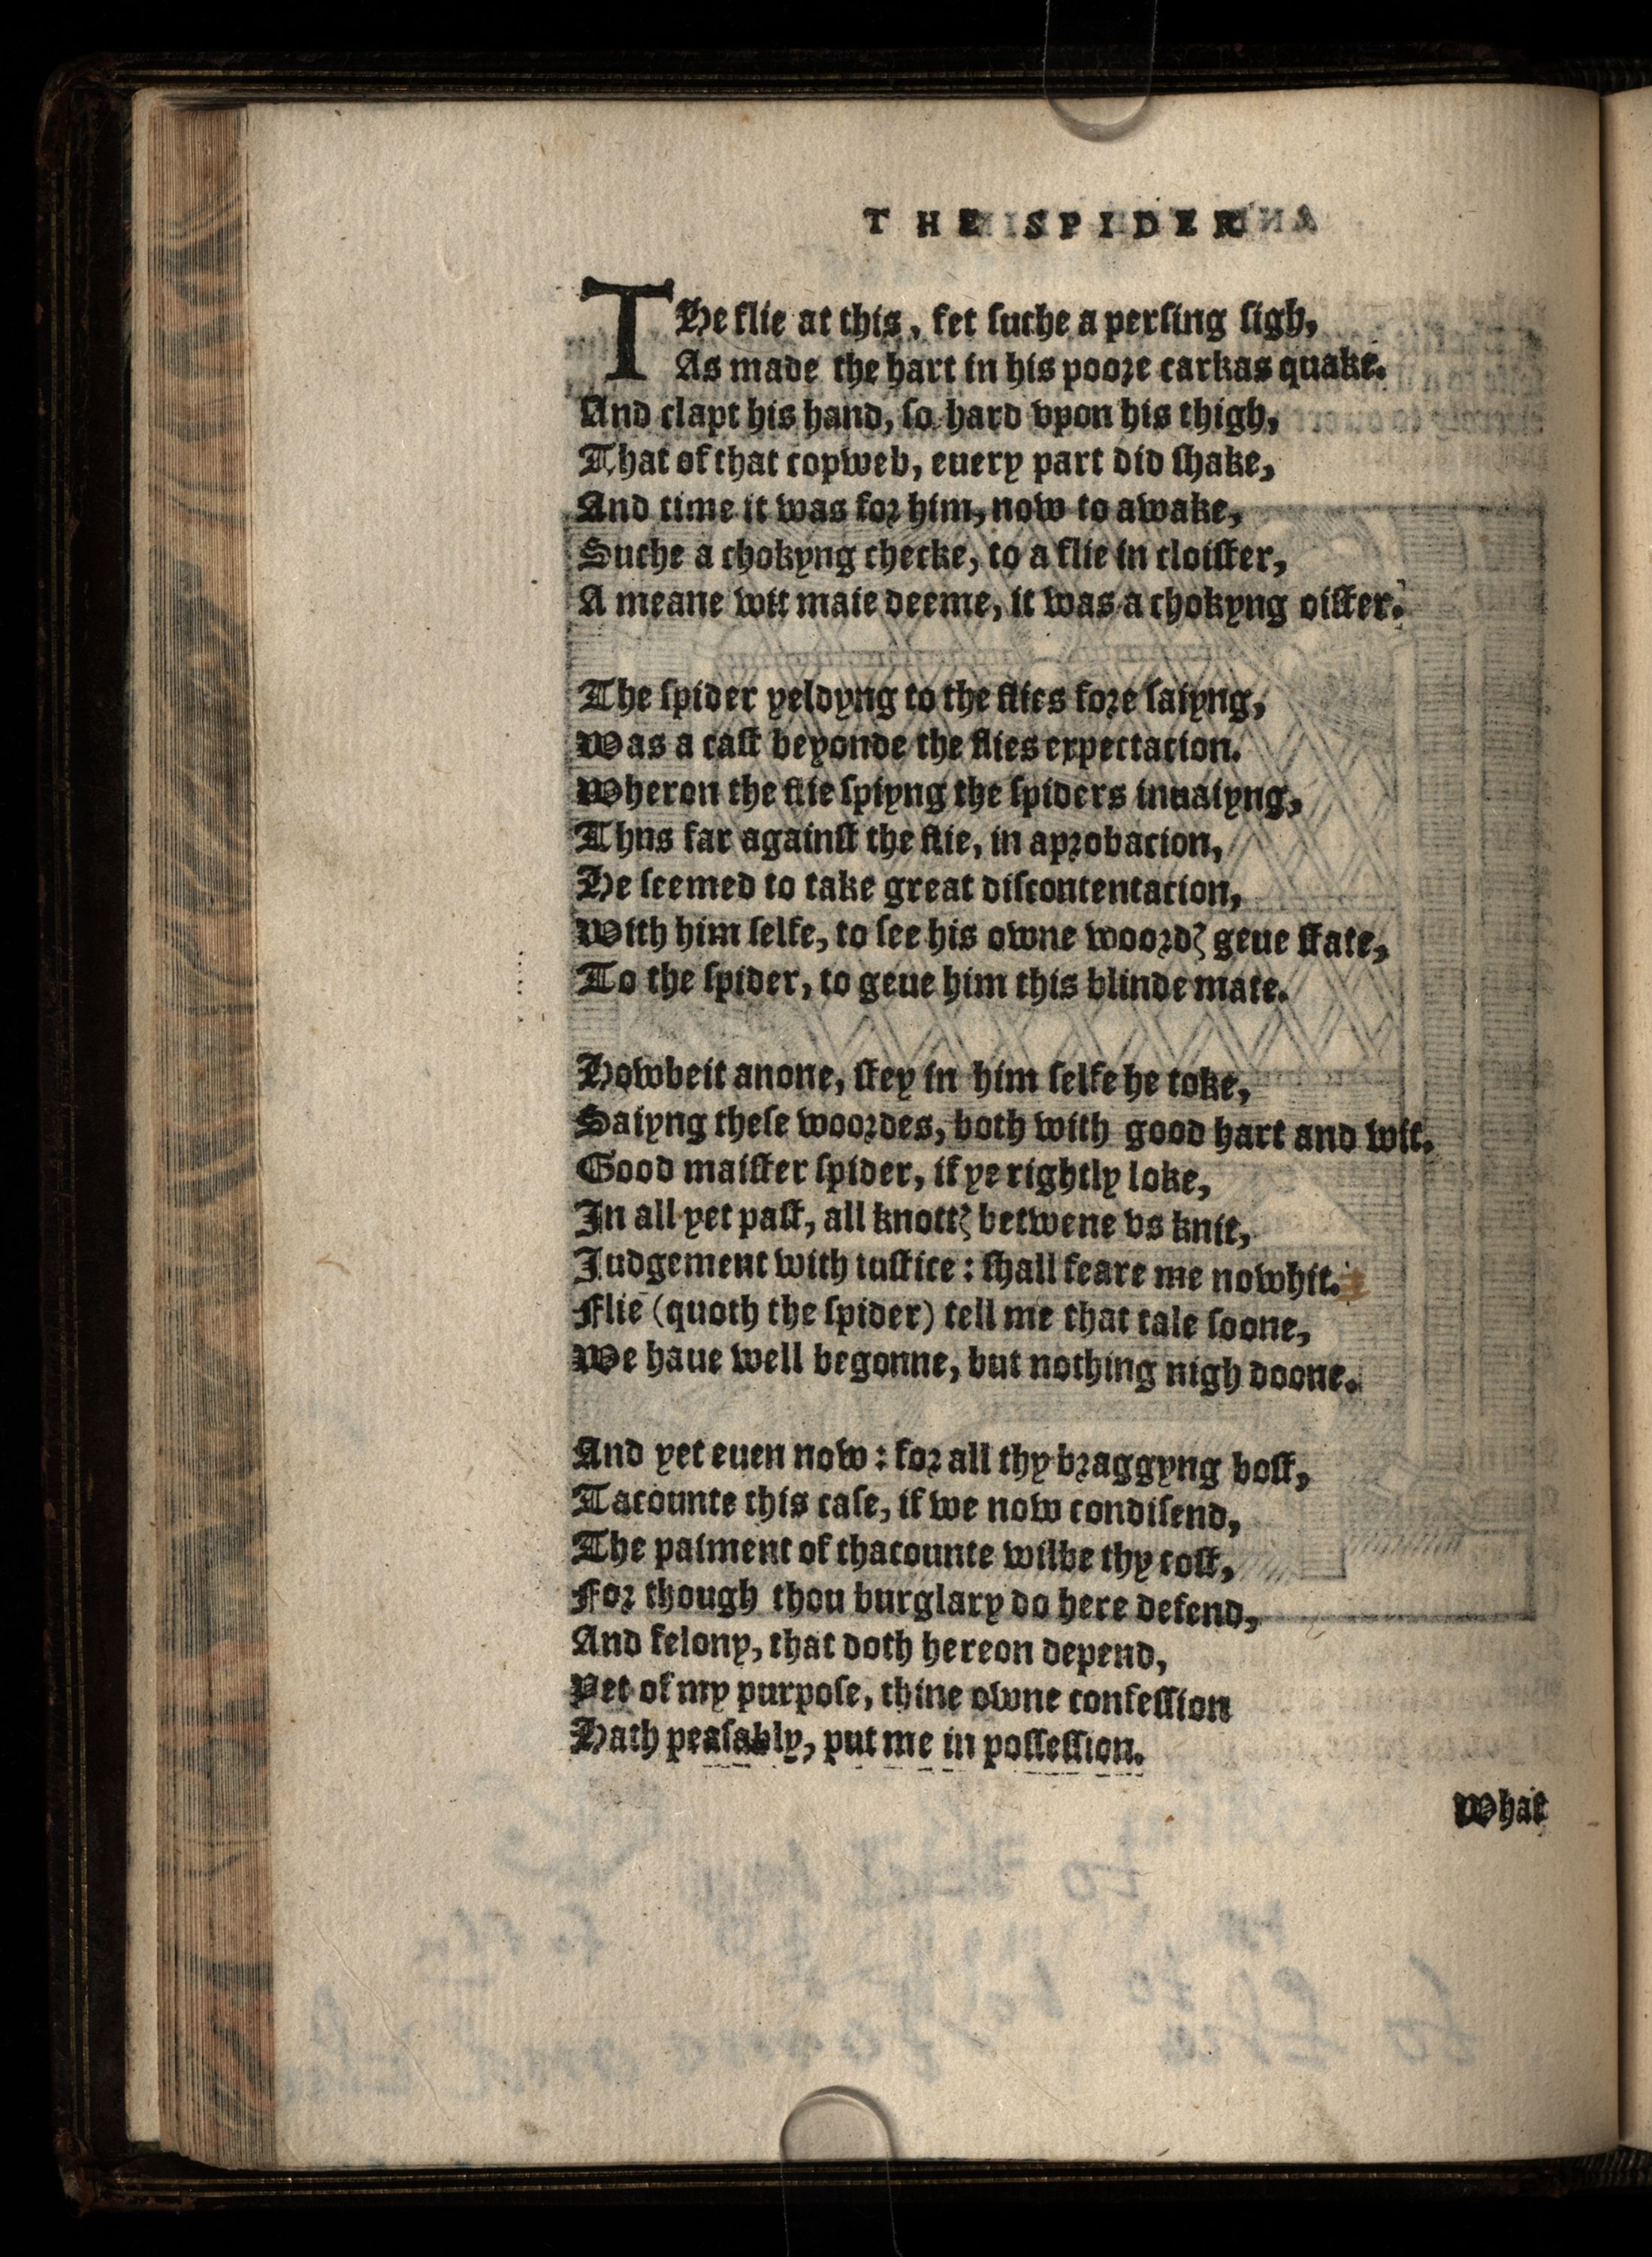 THE SPIDER
THe flie at this, fet suche a persing sigh,
As made the hart in his poore carkas quake.
And clapt his hand, so hard vpon his thigh,
That of that copweb, euery part did shake,
And time it was for him, now to awake,
Suche a chokyng checke, to a flie in cloister,
A meane wit maie deeme, it was a chokyng oister.
The spider yeldyng to the flies fore saiyng,
Was a cast beyonde the flies expectacion.
Wheron the flie spiyng the spiders inuaiyng,
Thns far against the flie, in aprobacion,
He seemed to take great discontentacion,
With him selfe, to see his owne woordꝭ geue state,
To the spider, to geue him this blinde mate.
Howbeit anone, stey in him selfe he toke,
Saiyng these woordes, both with good hart and wit.
Good maister spider, if ye rightly loke,
In all yet past, all knottꝭ betwene vs knit,
Judgement with iustice: shall feare me nowhit.
Flie (quoth the spider) tell me that tale soone,
We haue well begonne, but nothing nigh doone.
And yet euen now: for all thy braggyng bost,
Tacounte this case, if we now condisend,
The paiment of thacounte wilbe thy cost,
For though thou burglary do here defend,
And felony, that doth hereon depend,
Yet of my purpose, thine owne confession
Hath peasably, put me in possession.
What